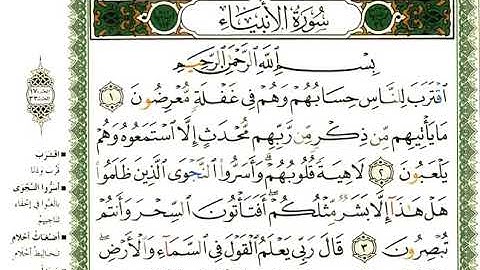 سُورَةُ الأَنْبِيَاءِ
بِسْمِ اللَّهِ الرَّحْمَٰنِ الرَّحِيمِ
اقْتَرَبَ لِلنَّاسِ حِسَابُهُمْ وَهُمْ فِي غَفْلَةٍ مُّعْرِضُونَ ١
مَا يَأْتِيهِم مِّن ذِكْرٍ مِّن رَّبِّهِم مُّحْدَثٍ إِلَّا اسْتَمَعُوهُ وَهُمْ
يَلْعَبُونَ ٢ لَاهِيَةً قُلُوبُهُمْ وَأَسَرُّوا النَّجْوَى الَّذِينَ ظَلَمُوا
هَلْ هَٰذَا إِلَّا بَشَرٌ مِّثْلُكُمْ أَفَتَأْتُونَ السِّحْرَ وَأَنتُمْ
تُبْصِرُونَ ٣ قَالَ رَبِّي يَعْلَمُ الْقَوْلَ فِي السَّمَاءِ وَالْأَرْضِ
اقترب
قرب ودنا
أسروا النجوى
بالغوا في إخفاء
تناجيهم
أضغاث أحلام
تخاليط أحلام